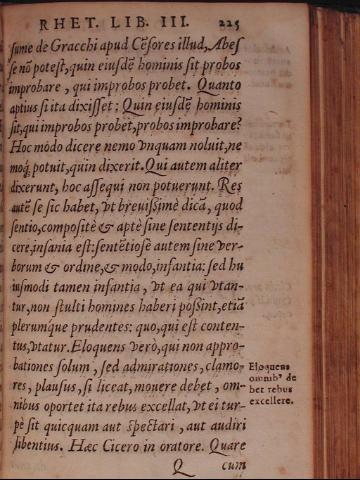 RHET. LIB. III. 225
sume de Gracchi apud Cẽsores illud, Abes
se nõ potest, quin eiusdẽ hominis sit probos
improbare, qui improbos probet. Quanto
aptius si ita dixisset: Quin eiusdẽ hominis
sit, qui improbos probet, probos improbare?
Hoc modo dicere nemo vnquam noluit, ne
moq́; potuit, quin dixerit. Qui autem aliter
dixerunt, hoc assequi non potuerunt. Res
autẽ se sic habet, vt breuissimè dicã, quod
sentio, compositè & aptè sine sententijs di-
cere, insania est: sentẽtiosè autem sine ver-
borum & ordine, & modo, infantia: sed hu
iusmodi tamen infantia, vt ea qui vtan-
tur, non stulti homines haberi possint, etiã
plerumque prudentes: quo, qui est conten-
tus, vtatur. Eloquens verò, qui non appro-
bationes solum, sed admirationes, clamo-
res, plausus, si liceat, mouere debet, om-
nibus oportet ita rebus excellat, vt ei tur-
pè sit quicquam aut spectari, aut audiri
libentius. Hæc Cicero in oratore. Quare
Q cum
Eloquens
omnib⁹ de
bet rebus
excellere.